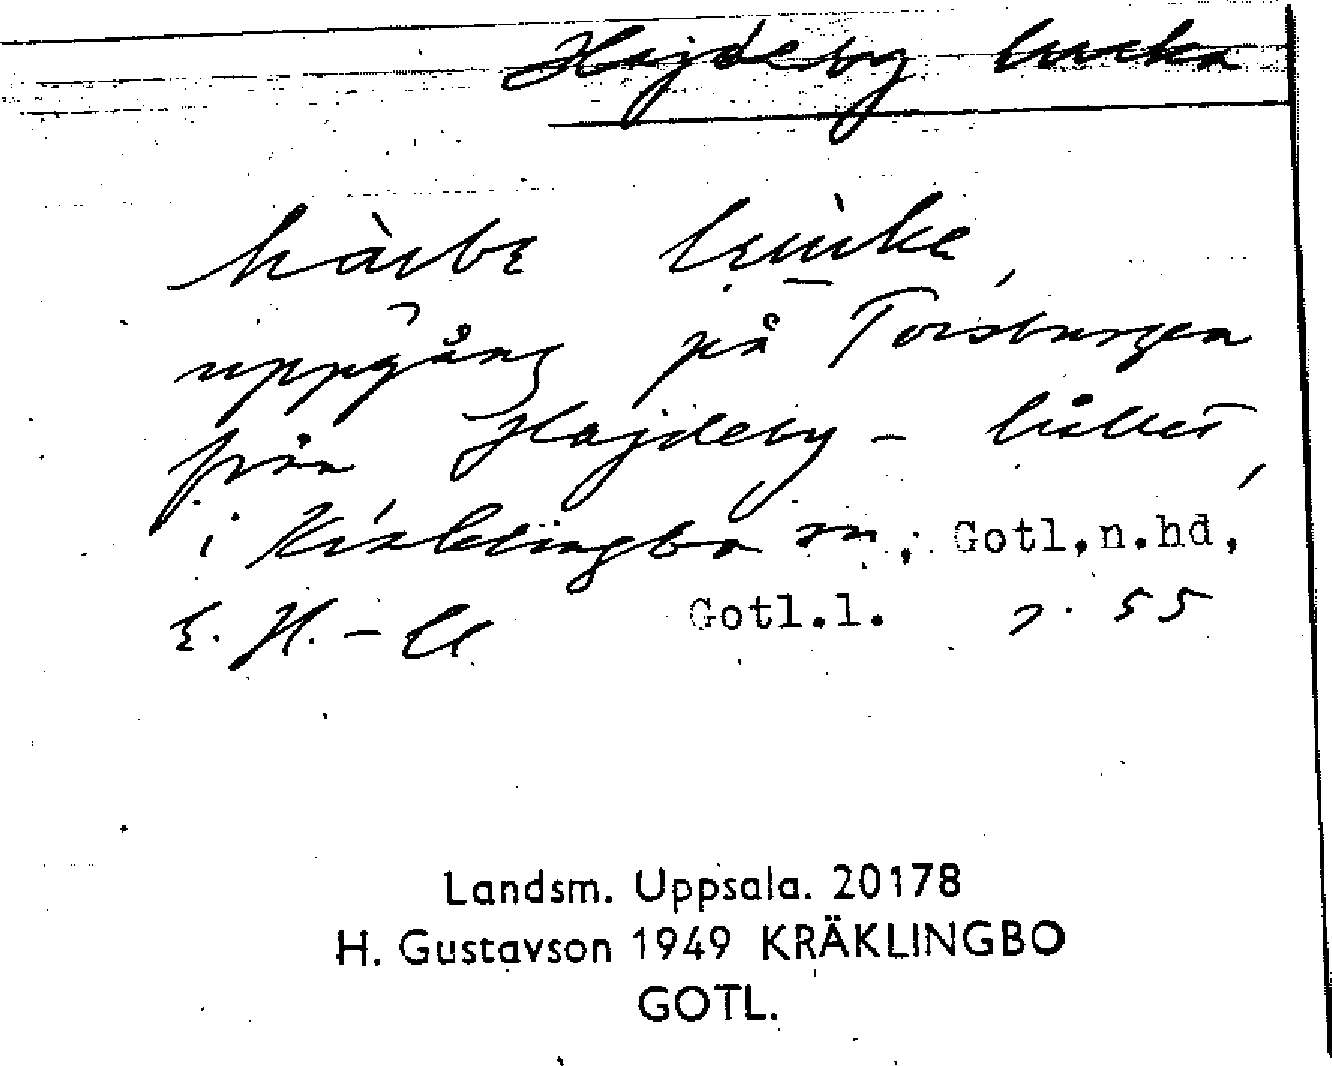 Hajdeby lucka
uppgång på Torsburgen
från Hajdeby - hållet,
i Kräklingbo sn, Gotl.n.hd,
Gotl.l. 55
Landsm. Uppsala. 20178
H. Gustavson 1949 KRÄKLINGBO
GOTL.